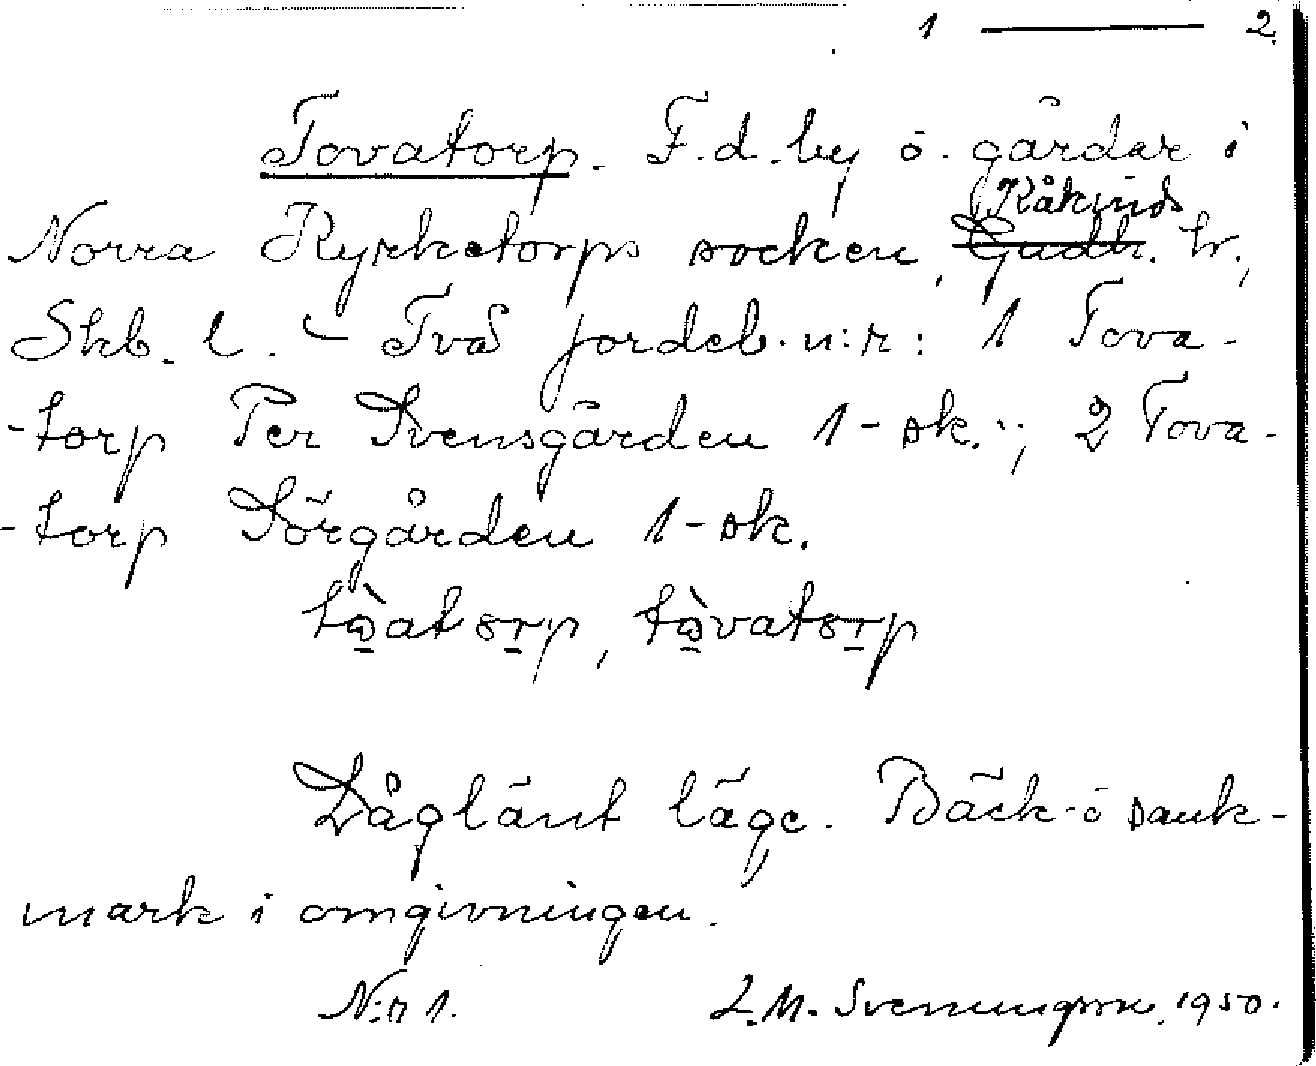 1 — 2
Tovatorp. F.d. by o. gårdar i
Kåkinds
Norra Kyrketorps socken, Gudh. hr.,
Skb. l. – Två jordeb. n:r: 1 Tova-
-torp Per Svensgården 1-sk.; 2 Tova-
-torp Sörgården 1-sk.
Låglänt läge. Bäck- o sank-
mark i omgivningen.
N:r 1. L.M. Svenungsson. 1950.